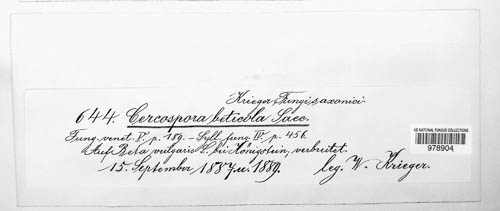 Krieger, Fungi saxonici
644. Cercospora beticola Sacc.
Fung. venet. V. p. 189. – Syll. fung. IV. p. 456.
Auf Beta vulgaris L. bei Königstein, verbreitet.
15. September 1887 u. 1889. leg. W. Krieger.
US NATIONAL FUNGUS COLLECTIONS
978904